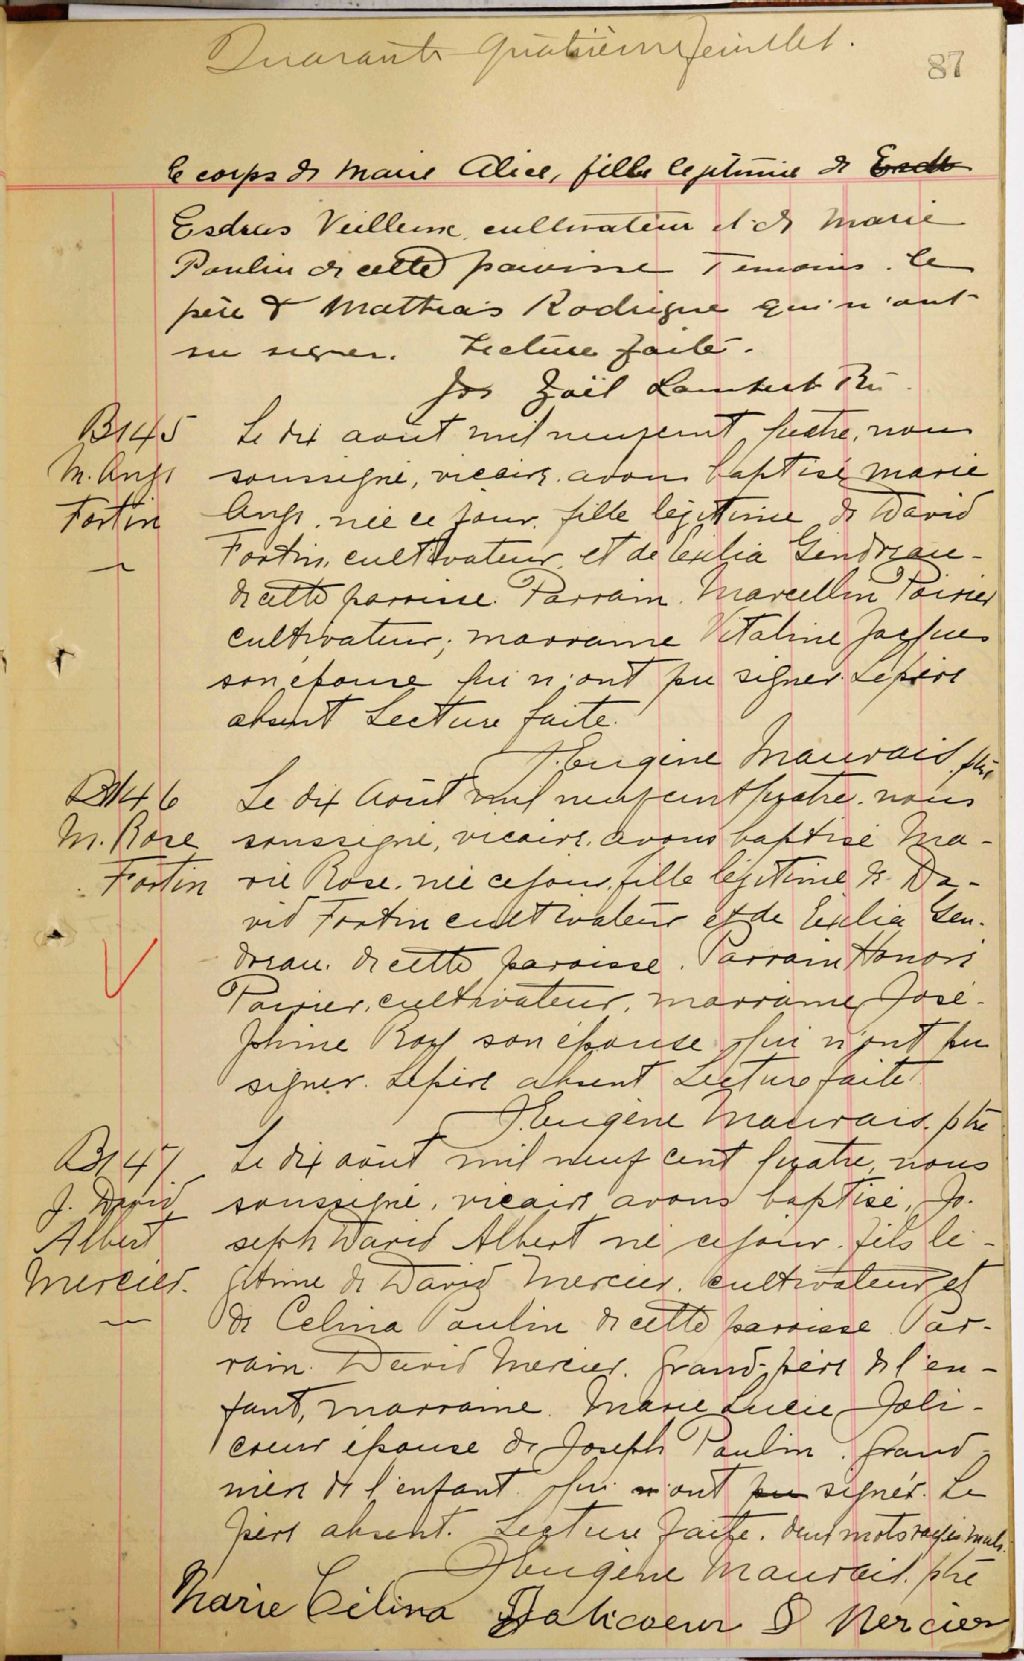 Quarante quatrième feuillet.
87
le corps de Marie Alice, fille legitime de
Esdras Veilleux cultivateur et de Marie
Poulin de cette paroisse Temoins. le
père & Mathias Rodrigue qui n'ont
su signer. Lecture faite.
Jos Zoël Lambert
B 145
M. Ange
Fortin
Le dix août mil neuf cent quatre, nous
soussigné, vicaire avons baptisé Marie
Ange, née ce jour, fille légitime de David
Fortin, cultivateur et de Exelia Gendreau
de cette paroisse. Parrain. Marcellin Poirier
cultivateur; marraine Vitaline Jacques
son épouse qui n'ont pu signer. Le père
absent Lecture faite.
J. Eugène Mauvais ptre
B 146
M. Rose
Fortin
Le dix Août mil neuf cent quatre. nous
soussigné, vicaire, avons baptisé Ma-
rie Rose. née ce jour, fille légitime de Da-
vid Fortin cultivateur et de Exelia Gen-
dreau. de cette paroisse. Parrain Honoré
Poirier, cultivateur, marraine José-
phine Roy son épouse qui n'ont pu
signer. Le père absent Lecture faite.
J. Eugène Mauvais. ptre
B 147
J. David
Albert
Mercier.
Le dix août mil neuf cent quatre, nous
soussigné, vicaire avons baptisé, Jo-
seph David Albert né ce jour. fils lé-
gitime de David Mercier. cultivateur et
de Celina Poulin de cette paroisse Par-
rain. David Mercier. Grand-père de l'en-
fant, marraine. Marie Lucie Joli-
coeur épouse de Joseph Poulin. Grand
mère de l'enfant. qui n'ont pu signer. Le
père absent. Lecture faite. deux mots rayés nuls.
J. Eugène Mauvais. ptre
Marie Célina Jolicoeur D Mercier